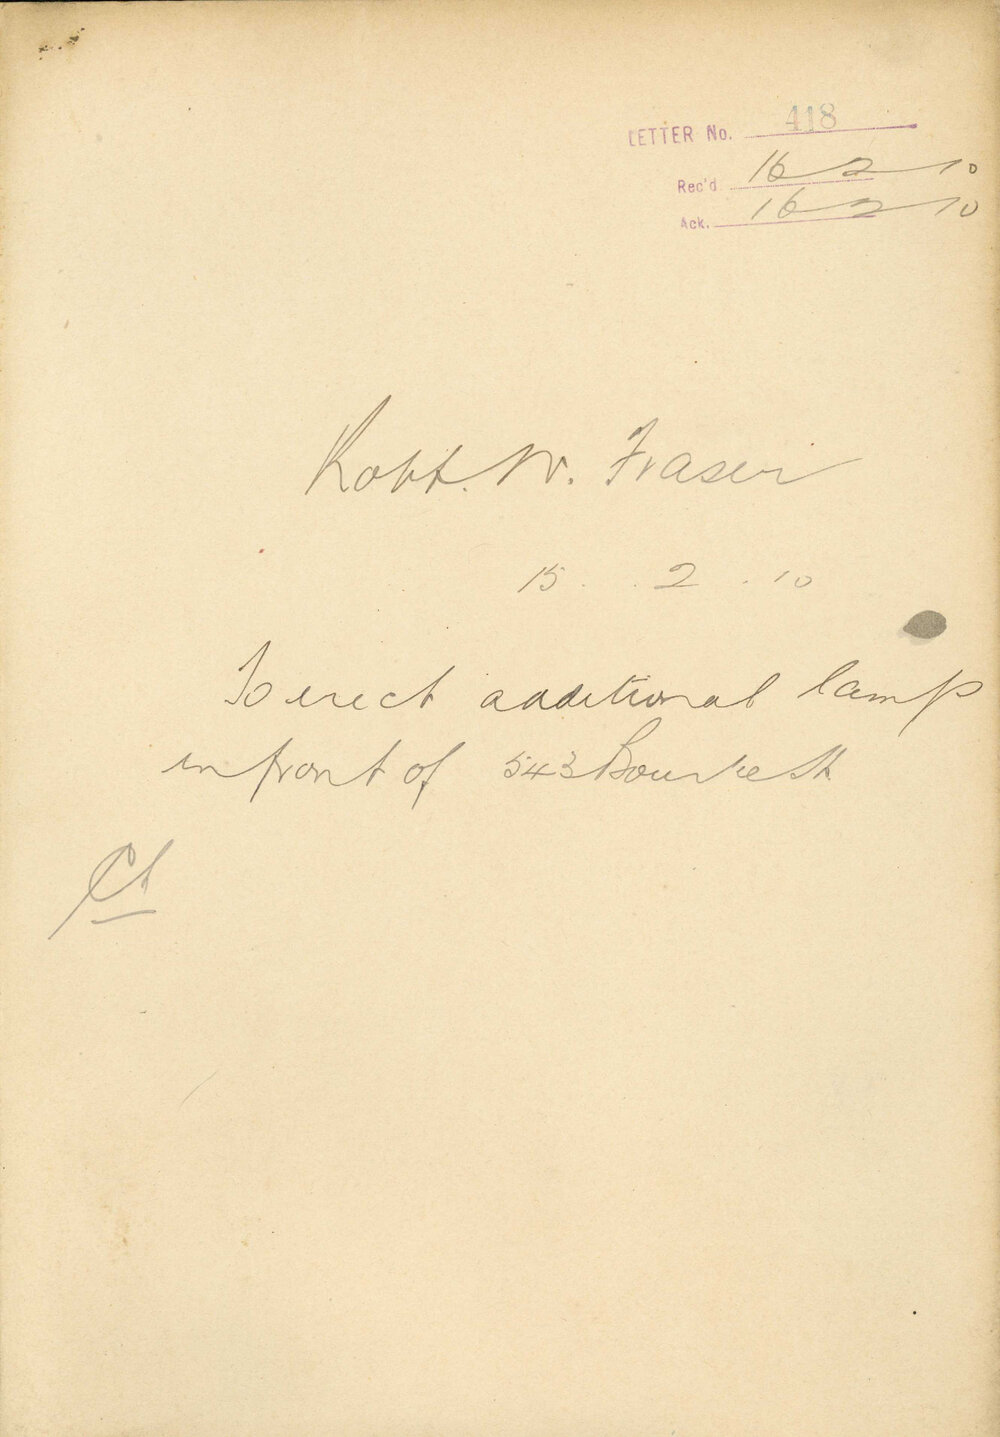 LETTER No. 418
Rec'd 16 2 10
Ack. 16 2 10
Robt. W. Fraser
15 . 2 . 10
To erect additional lamp
in front of 543 Bourke St.